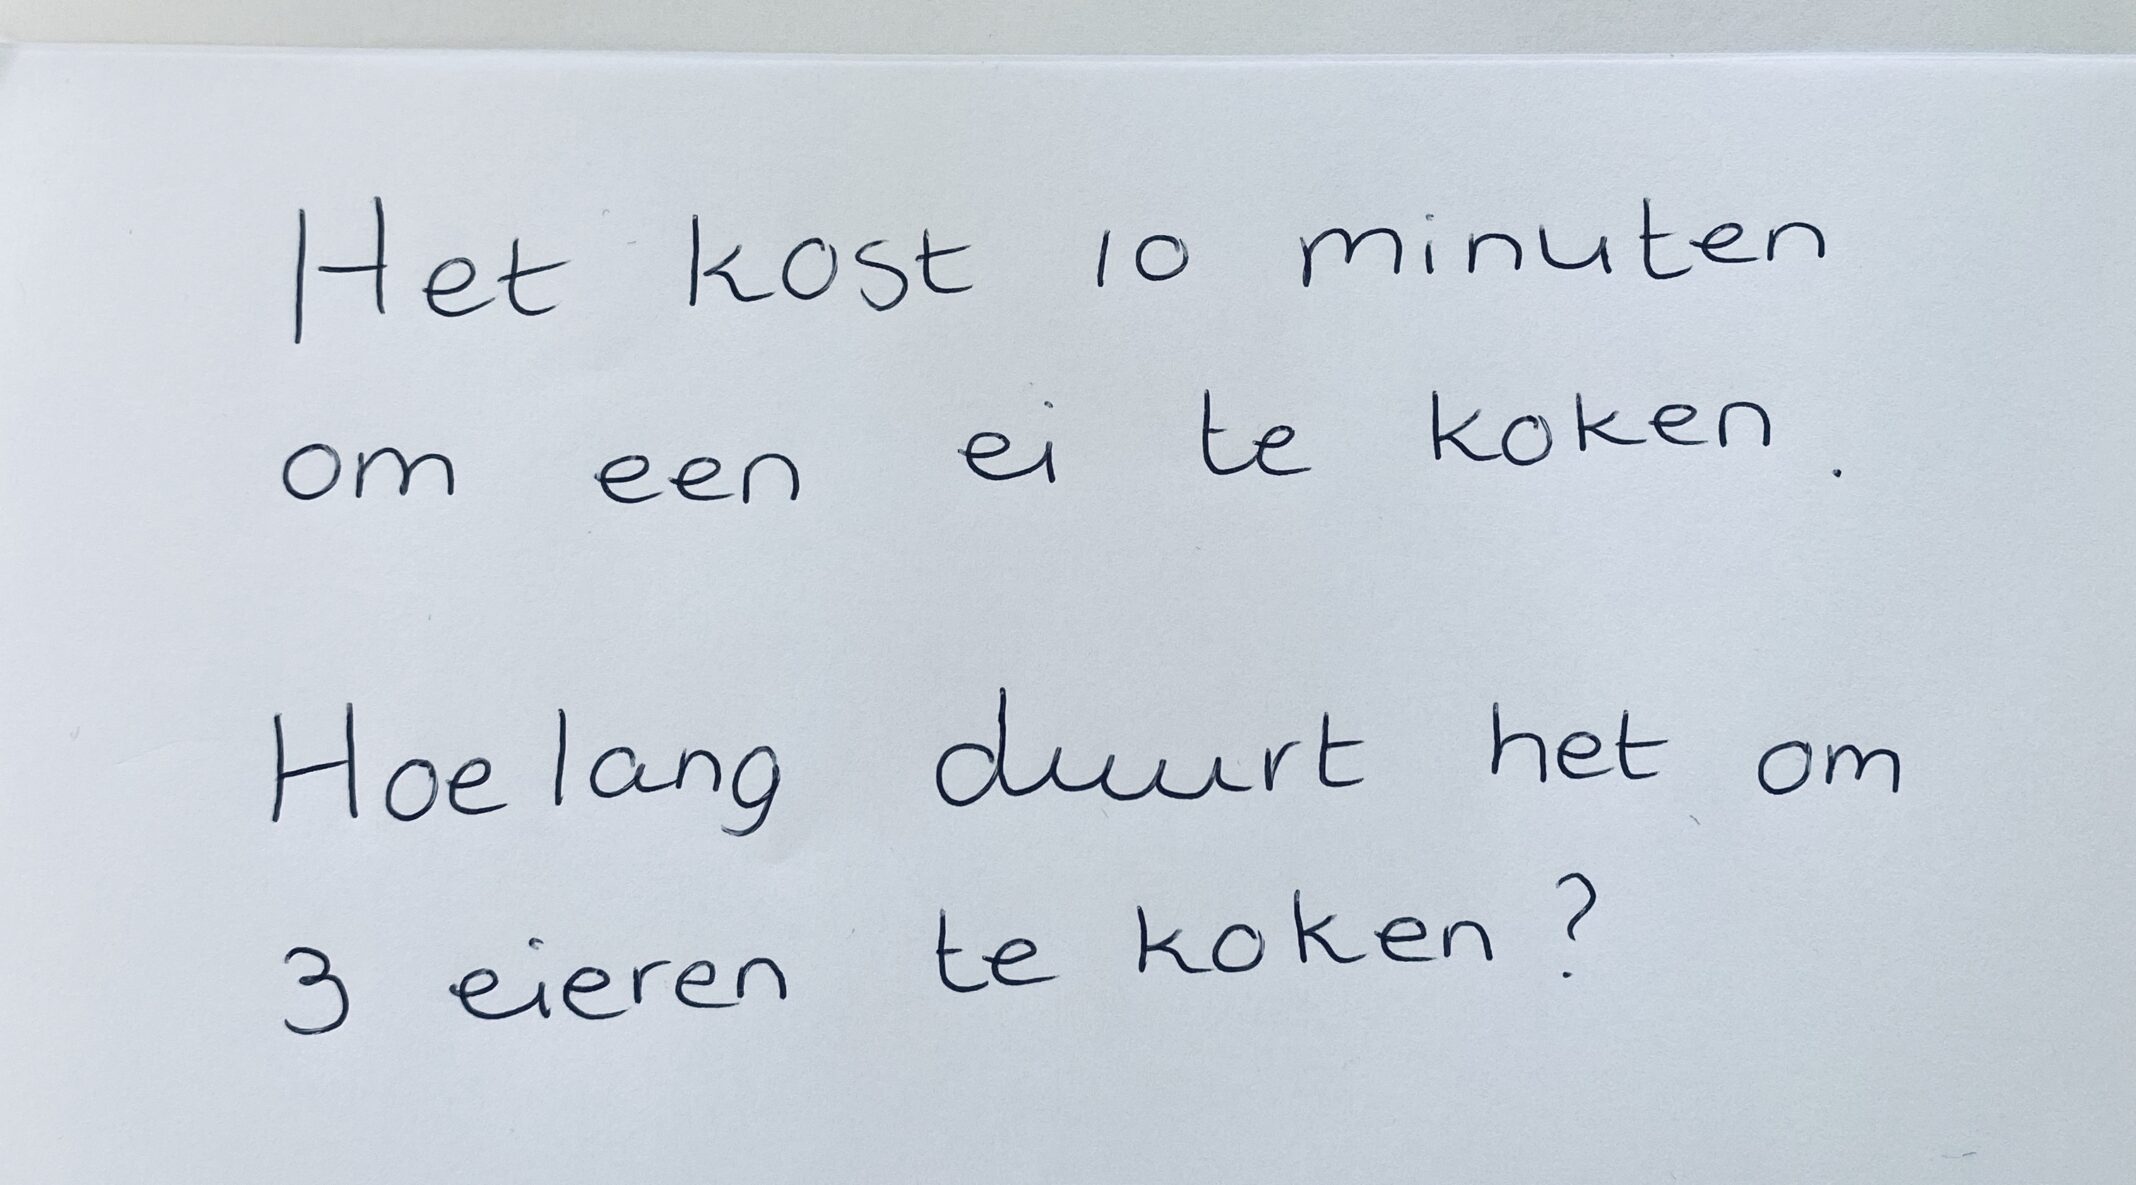 Het kost 10 minuten
om een ei te koken.
Hoelang duurt het om
3 eieren te koken?